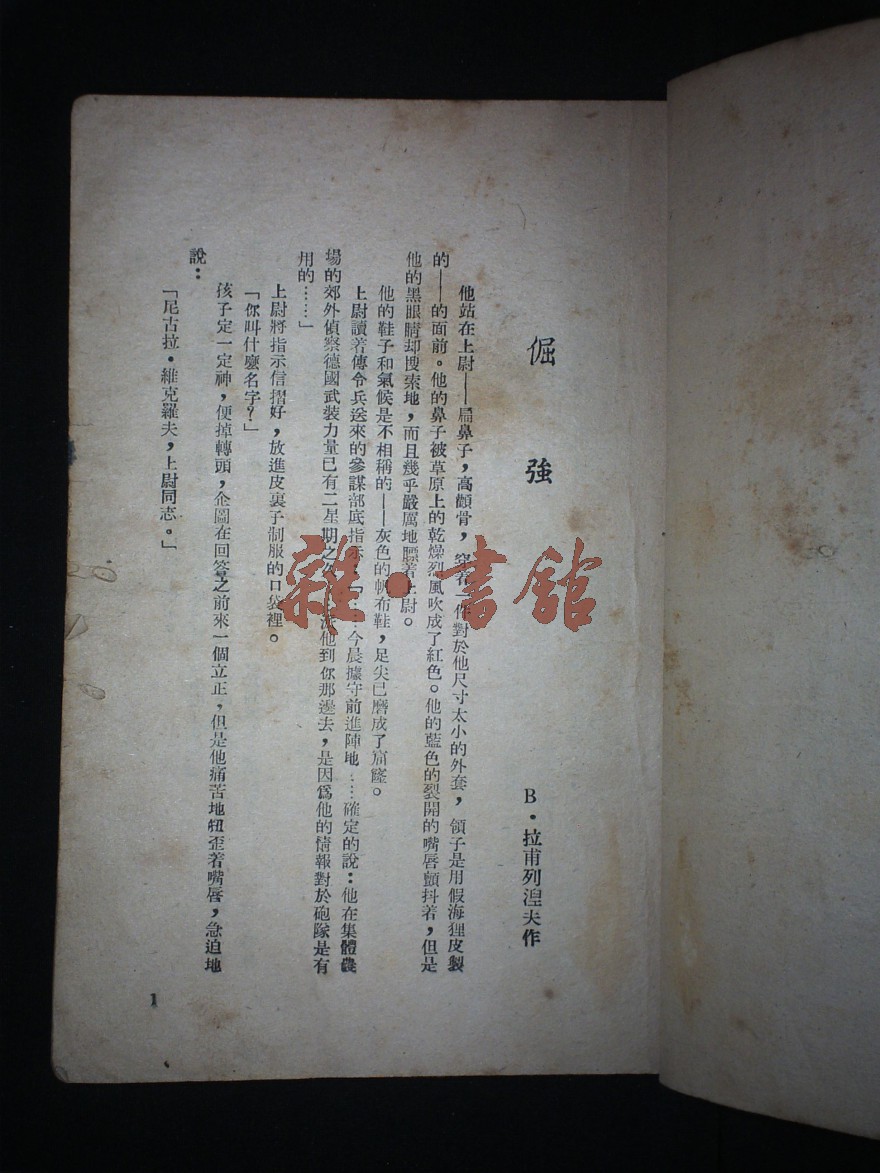 倔強
B·拉甫列湼夫作
他站在上尉——扁鼻子，高顴骨，穿着一件對於他尺寸太小的外套，領子是用假海狸皮製
的——的面前。他的鼻子被草原上的乾燥烈風吹成了紅色。他的藍色的裂開的嘴唇顫抖着，但是
他的黑眼睛却搜索地，而且幾乎嚴厲地瞟着上尉。
他的鞋子和氣候是不相稱的——灰色的帆布鞋，足尖已磨成了窟窿。
上尉讀着傳令兵送來的參謀部底指示：「……今晨據守前進陣地……確定的說：他在集體農
場的郊外偵察德國武裝力量已有二星期之久 他到你那邊去，是因爲他的情報對於砲隊是有
用的……」
上尉將指示信摺好，放進皮裏子制服的口袋裡。
「你叫什麼名字？」
孩子定一定神，便掉轉頭，企圖在回答之前來一個立正，但是他痛苦地扭歪着嘴唇，急迫地
說：
「尼古拉·維克羅夫，上尉同志。」
1
雜·書館